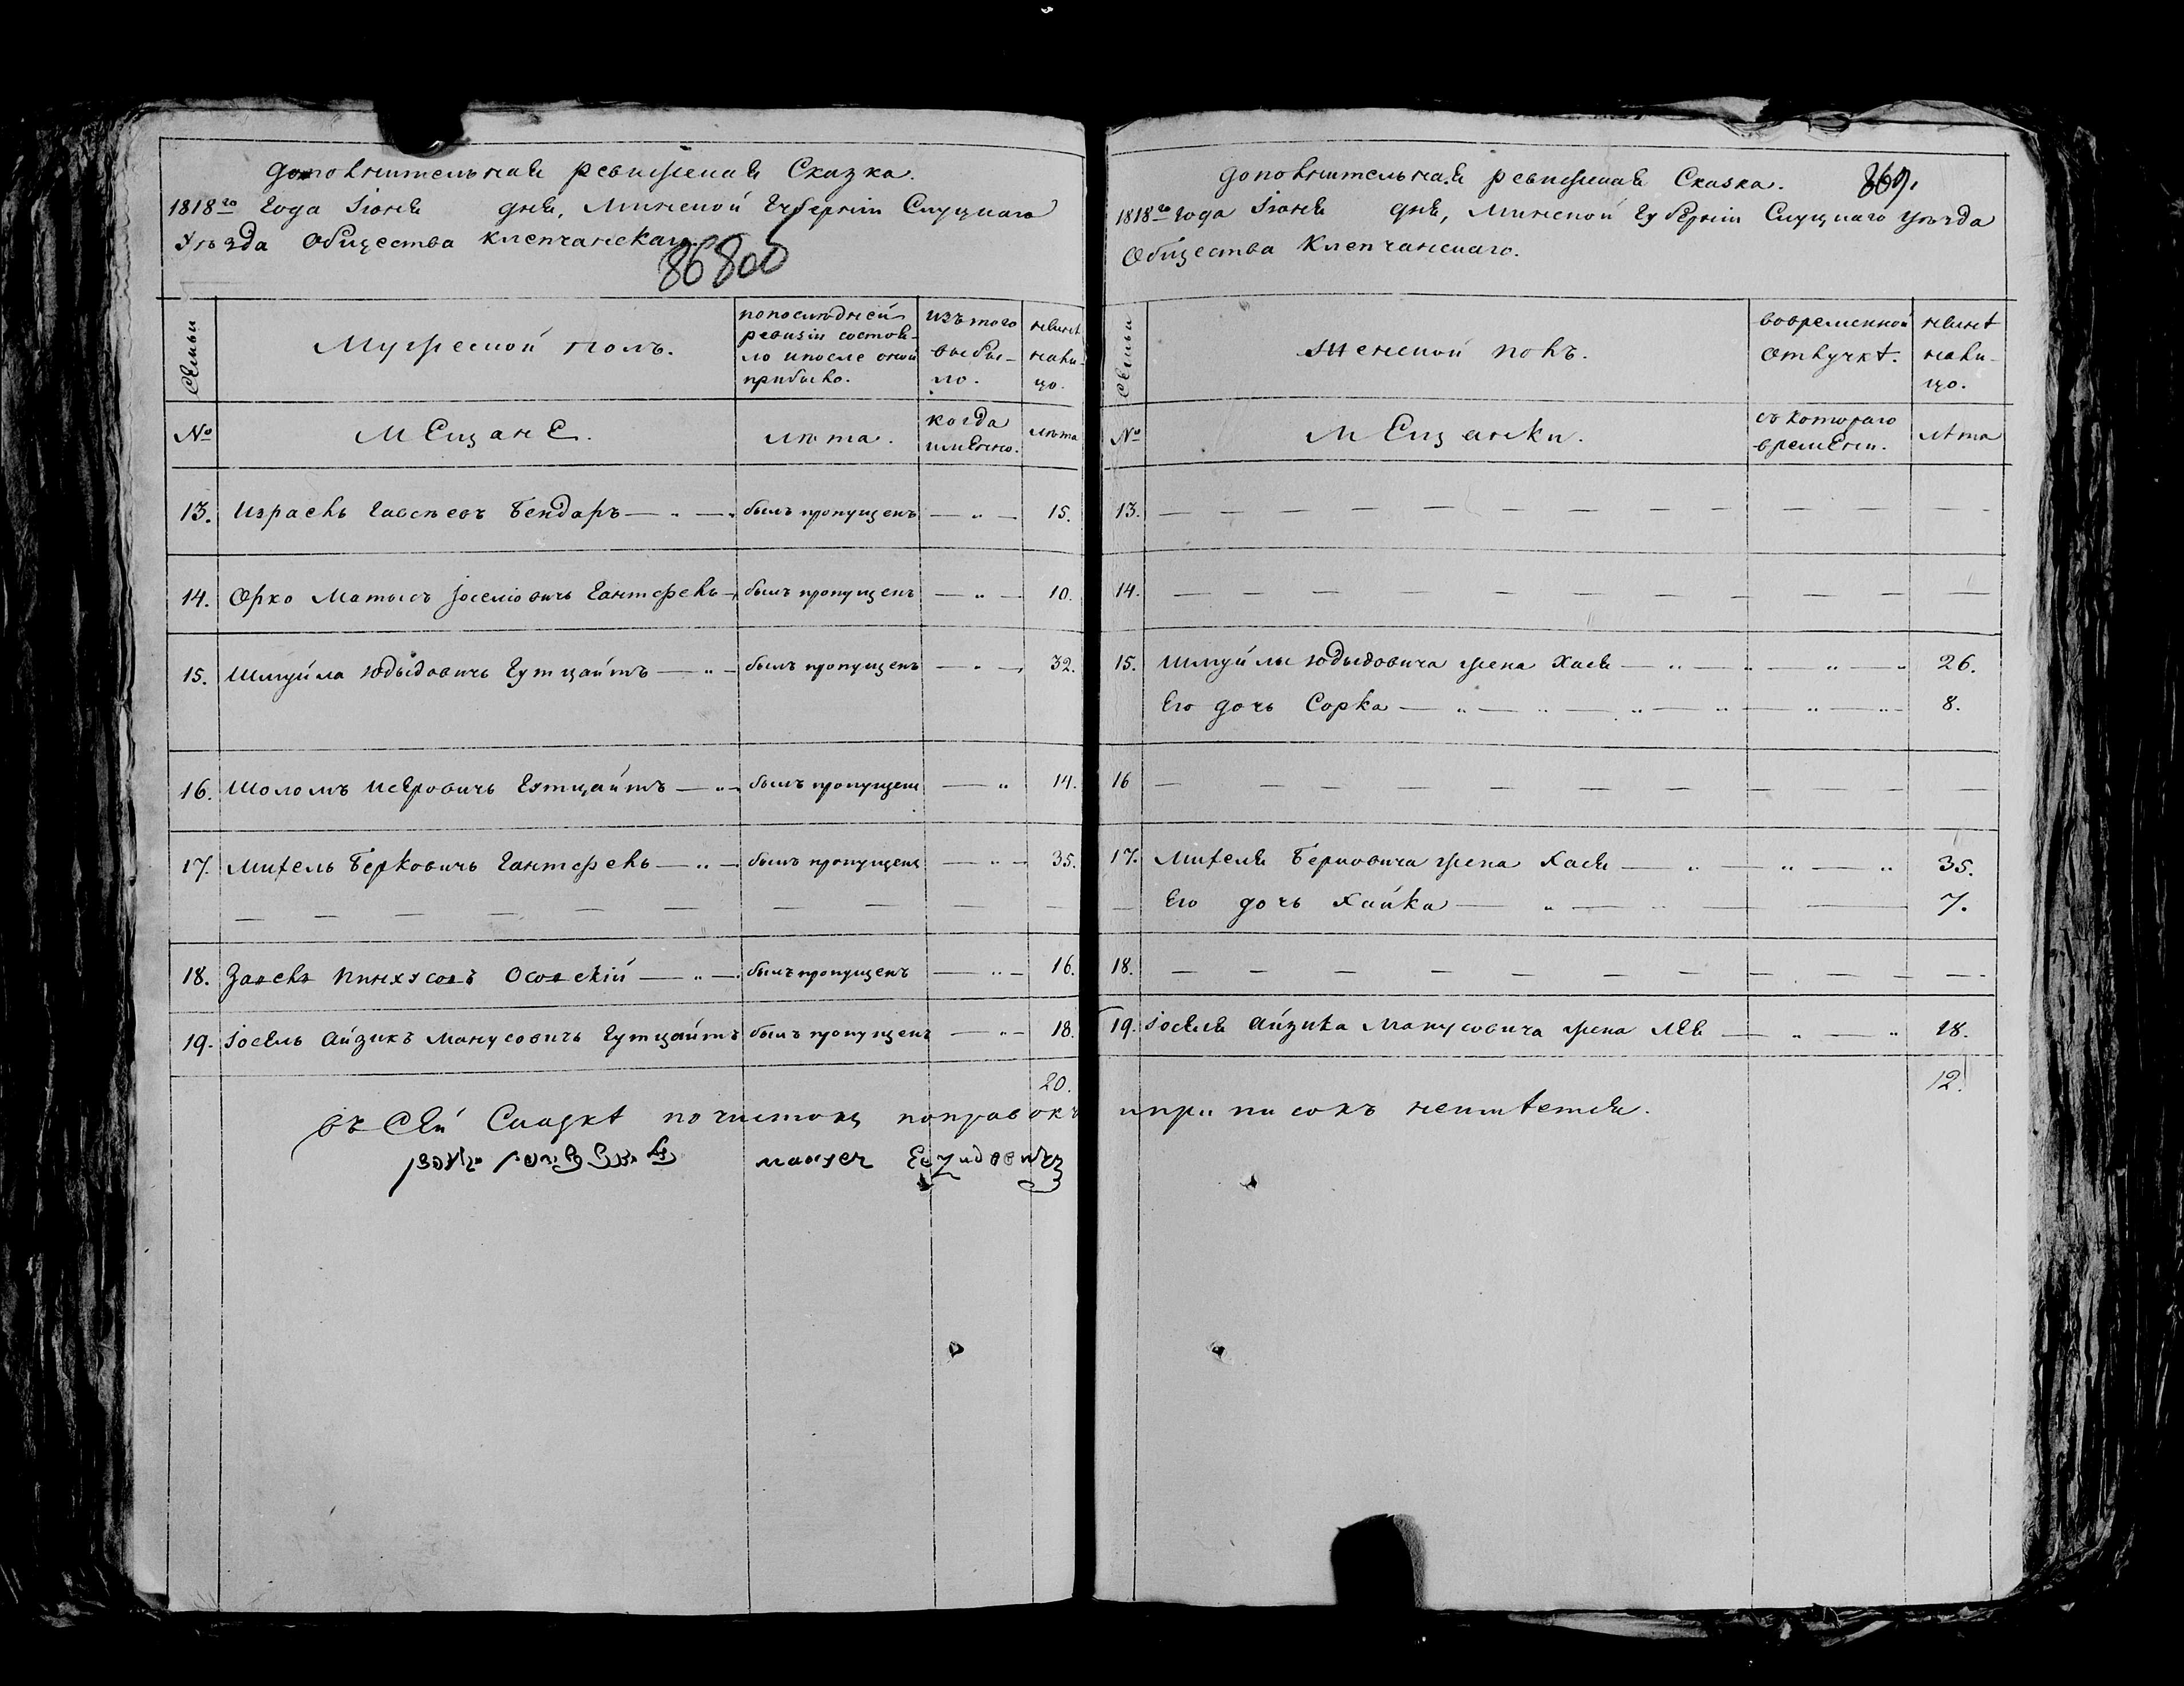 дополнительная ревижская Сказка.
1818го Года Іюня дня, Минской Губерніи Слуцкаго
Уѣзда Общества Клепчанскаго.
86800
Семьи
Мужеской полъ.
попоследней
ревизіи состоя-
ло ипосле оной
прибыло.
изътого
выбы-
ло.
ныне
нали-
цо.
№
МЕщанЕ.
лѣта.
когда
имЕнно.
лѣта
13. Израель Евсѣевъ Бендаръ — былъ пропущенъ — 15.
14. Орко Матысъ Іоселіовичъ Гантсрель — былъ пропущенъ — 10.
15. Шмуйла Юдыдовичъ Гутцайтъ — былъ пропущенъ — 32.
16. Шоломъ Исеровичъ Гутцайтъ — былъ пропущенъ — 14.
17. Михель Берковичъ Гантсрель — былъ пропущенъ — 35.
18. Запель Пинхусовъ Осовскій — былъ пропущенъ — 16.
19. Іосель Айзикъ Манусовичъ Гутцайтъ былъ пропущенъ — 18.
20.
въ Сей Сказке почистокъ поправокъ
דוגמא
860.
дополнительная ревижская Сказка.
1818го года Іюня дня, Минской Губерніи Слуцкаго уѣзда
Общества Клепчанскаго.
Семьи
Женской полъ.
вовременной
отлучкѣ.
ныне
нали-
цо.
№
МЕщанки.
съ котораго
времЕни.
лѣта
13.
14.
15. Шмуйлы Юдыдовича жена Хая — 26.
Его дочь Сорка — 8.
16
17. Михеля Берковича жена Хася — 35.
Его дочь Хайка — 7.
18.
19. Іоселя Айзика Манусовича жена Лея — 18.
12.
ипри писокъ неимѣется.